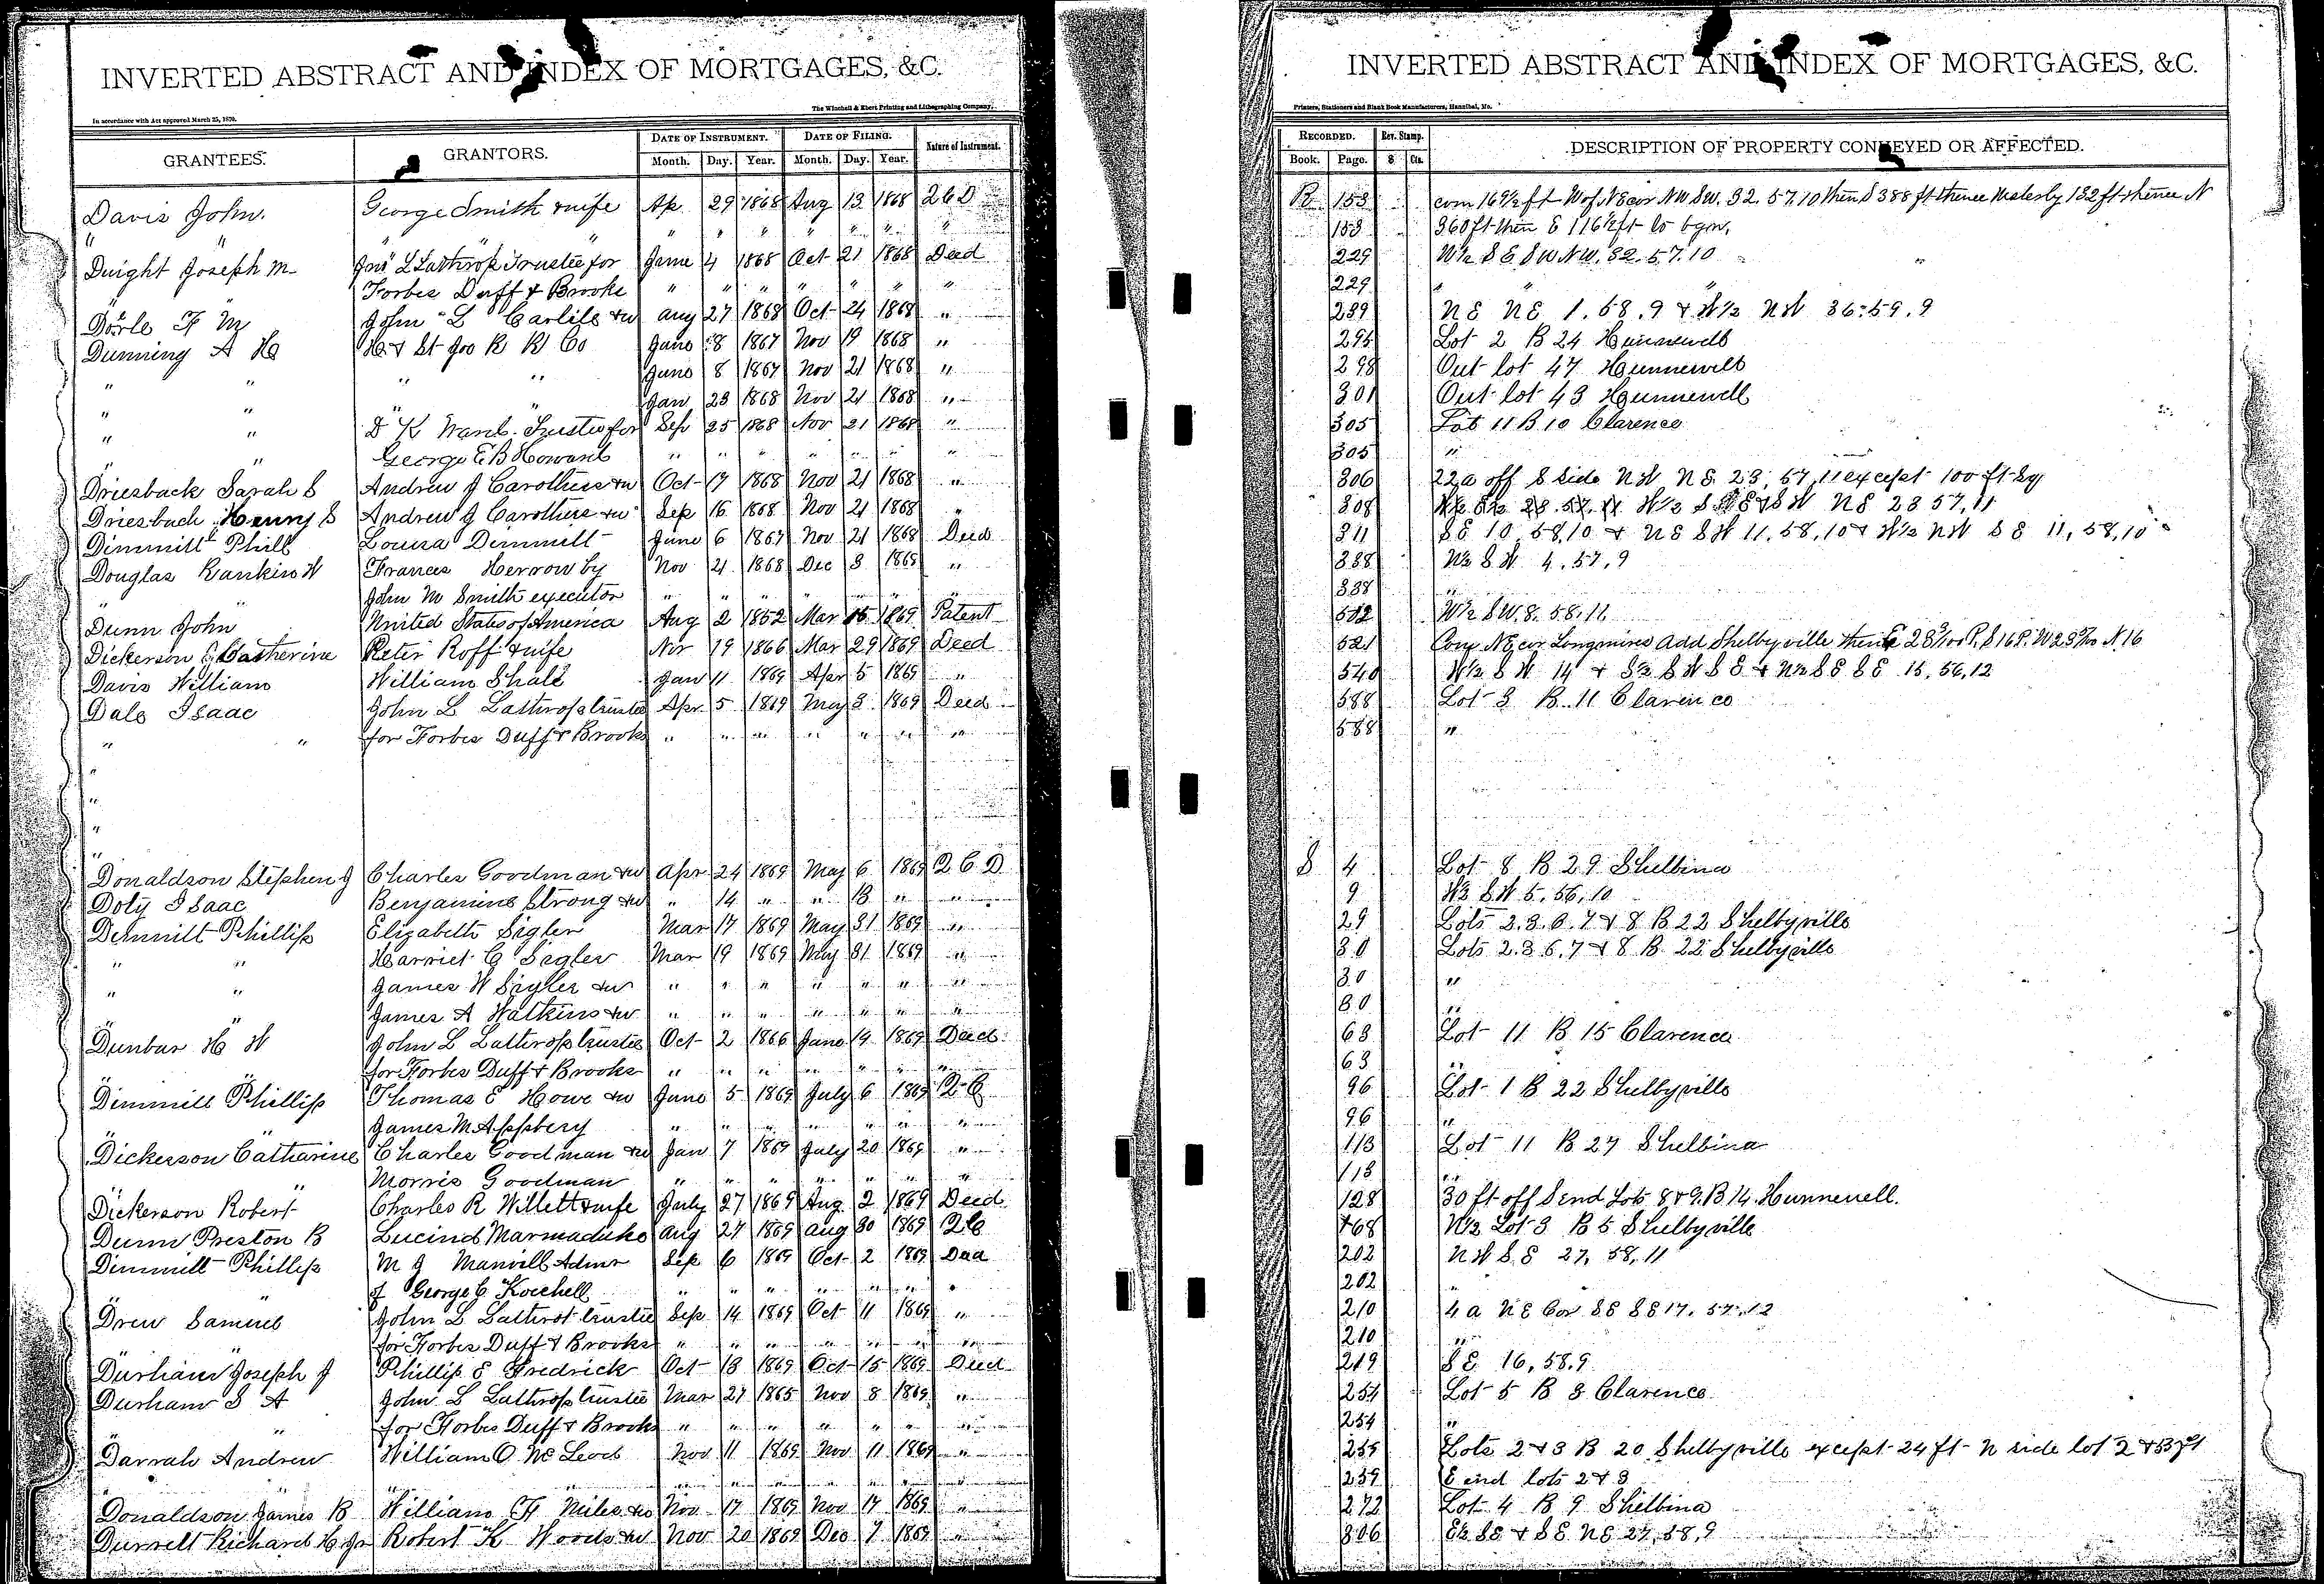 INVERTED ABSTRACT AND INDEX OF MORTGAGES, &C.
The Winchell & Ebert Printing and Lithographing Company,
In accordance with Act approved March 25, 1870.
GRANTEES. GRANTORS. DATE OF INSTRUMENT. DATE OF FILING. Nature of Instrument.
Month. Day. Year. Month. Day. Year.
Davis John. George Smith & wife Ap 29 1868 Aug 13 1868 2 C D
" " " " " " " " " "
Dwight Joseph M Jno L Lathrop Trustee for June 4 1868 Oct 21 1868 Deed
Forbes Duff & Brooks " " " " " " "
F M John L Carlile & w Aug 27 1868 Oct 24 1868 "
Dunning A H H & St Joo R R Co June 8 1867 Nov 19 1868 "
" " " " June 8 1867 Nov 21 1868 "
" " " " Jan 23 1868 Nov 21 1868 "
" " D K Trustee for Sep 25 1868 Nov 21 1868 "
" George E B Howard " " " " " " "
Driesback Sarah S Andrew J Carothers & w Oct 17 1868 Nov 21 1868 "
Driesbach Henry S Andrew J Carothers & w Sep 16 1868 Nov 21 1868 "
Dimmitt Phill Louisa Dimmitt June 6 1867 Nov 21 1868 Deed
Douglas Rankin W Frances by Nov 21 1868 Dec 3 1868 "
John M Smith executor " " " " " "
Dunn John United States of America Aug 2 1852 Mar 15 1869 Patent
Dickerson Catherine Peter Roff & wife Nov 19 1866 Mar 29 1869 Deed
Davis William William Shale Jan 11 1869 Apr 5 1869 "
Dale Isaac John L Lathrop trustee Apr 5 1869 May 3 1869 Deed
" " for Forbes Duff & Brooks " " " " " " "
"
"
"
"
Donaldson Stephen J Charles Goodman & w Apr 24 1869 May 6 1869 Q C D
Doty Isaac Benjamine Strong & w " 14 " " 13 " "
Dimmitt Phillip Elizabeth Sigler Mar 17 1869 May 31 1869 "
" " Harriet C Sigler Mar 19 1869 May 31 1869 "
" " James W Sigler & w " " " " " " "
" James A Watkins & w " " " " " " "
Dunbar H W John L Lathrop trustee Oct 2 1866 June 19 1869 Deed
" " for Forbes Duff & Brooks " " " " " " "
Dimmitt Phillip Thomas E Howe & w June 5 1869 July 6 1869 Q C
" " James M Appsbery " " " " " " "
Dickerson Catharine Charles Goodman & w Jan 7 1869 July 20 1869 "
" " Morris Goodman " " " " " " "
Dickerson Robert Charles R Willett & wife July 27 1869 Aug 2 1869 Deed
Dunn Preston B Lucind Marmaduke Aug 27 1869 Aug 30 1869 Q C
Dimmitt Phillip M J Manvill Admr Sep 6 1869 Oct 2 1869 Deed
" " of George C Koechell " " " " " " "
Drew Samuel John L Lathrop trustee Sep 14 1869 Oct 11 1869 "
for Forbes Duff & Brooks " " " " " " "
Durham Joseph J Phillip E Fredrick Oct 13 1869 Oct 15 1869 Deed
Durham S A John L Lathrop trustee Mar 27 1865 Nov 8 1869 "
" for Forbes Duff & Brooks " " " " " " "
Darrah Andrew William O McLeod Nov 11 1869 Nov 11 1869 "
" " " " " " " " " "
Donaldson James B William H Miles & w Nov 17 1869 Nov 17 1869 "
Durrett Richard H Jr Robert K Woods & w Nov 20 1869 Dec 7 1869 "
INVERTED ABSTRACT AND INDEX OF MORTGAGES, &C.
Printers, Stationers and Blank Book Manufacturers, Hannibal, Mo.
RECORDED. Rev. Stamp. DESCRIPTION OF PROPERTY CONVEYED OR AFFECTED.
Book. Page. $ Cts.
R 153 com 16½ ft W of NE cor NW SW. 32. 57. 10 then S 388 ft thence Westerly 132 ft thence N
153 360 ft then E 116½ ft to bgin.
229 W½ S E S W N W. 32. 57. 10
229 "
239 N E N E 1. 58. 9 & W½ N W 36. 59. 9
295 Lot 2 B 24 Hunnewell
298 Out lot 47 Hunnewell
301 Out lot 43 Hunnewell
305 Lot 11 B 10 Clarence
305 "
306 22a off S side N W N E. 23, 57, 11 except 100 ft sq
308 N E 23 57, 11
311 S E 10, 58, 10 & N E S W 11, 58, 10 & W½ N W S E 11, 58, 10
338 W½ S W 4, 57, 9
338 "
512 W½ S W. 8. 58. 11
521 Com NE cor Longmires Add Shelbyville
540 W½ S W 14 & S½ S W S E & N½ S E S E 15, 56, 12
588 Lot 3 B 11 Clarence
588 "
S 4 Lot 8 B 29 Shelbina
9 W½ S W 5, 56, 10
29 Lots 2. 3. 6. 7 & 8 B 22 Shelbyville
30 Lots 2. 3 6. 7 & 8 B 22 Shelbyville
30 "
30 "
63 Lot 11 B 15 Clarence
63 "
96 Lot 1 B 22 Shelbyville
96 "
113 Lot 11 B 27 Shelbina
113 "
128 30 ft off S end Lots 8 & 9. B 14. Hunnewell.
168 W½ Lot 3 B 5 Shelbyville
202 N W S E 27, 58, 11
202 "
210 4 a N E Cor S E S E 17. 57. 12
210 "
219 S E 16, 58. 9
254 Lot 5 B 8 Clarence
254 "
259 Lots 2 & 3 B 20 Shelbyville except 24 ft N side lot 2 & 53 ft
259 E end lots 2 & 3
272 Lot 4 B 9 Shelbina
306 E½ S E & S E N E 27, 58, 9